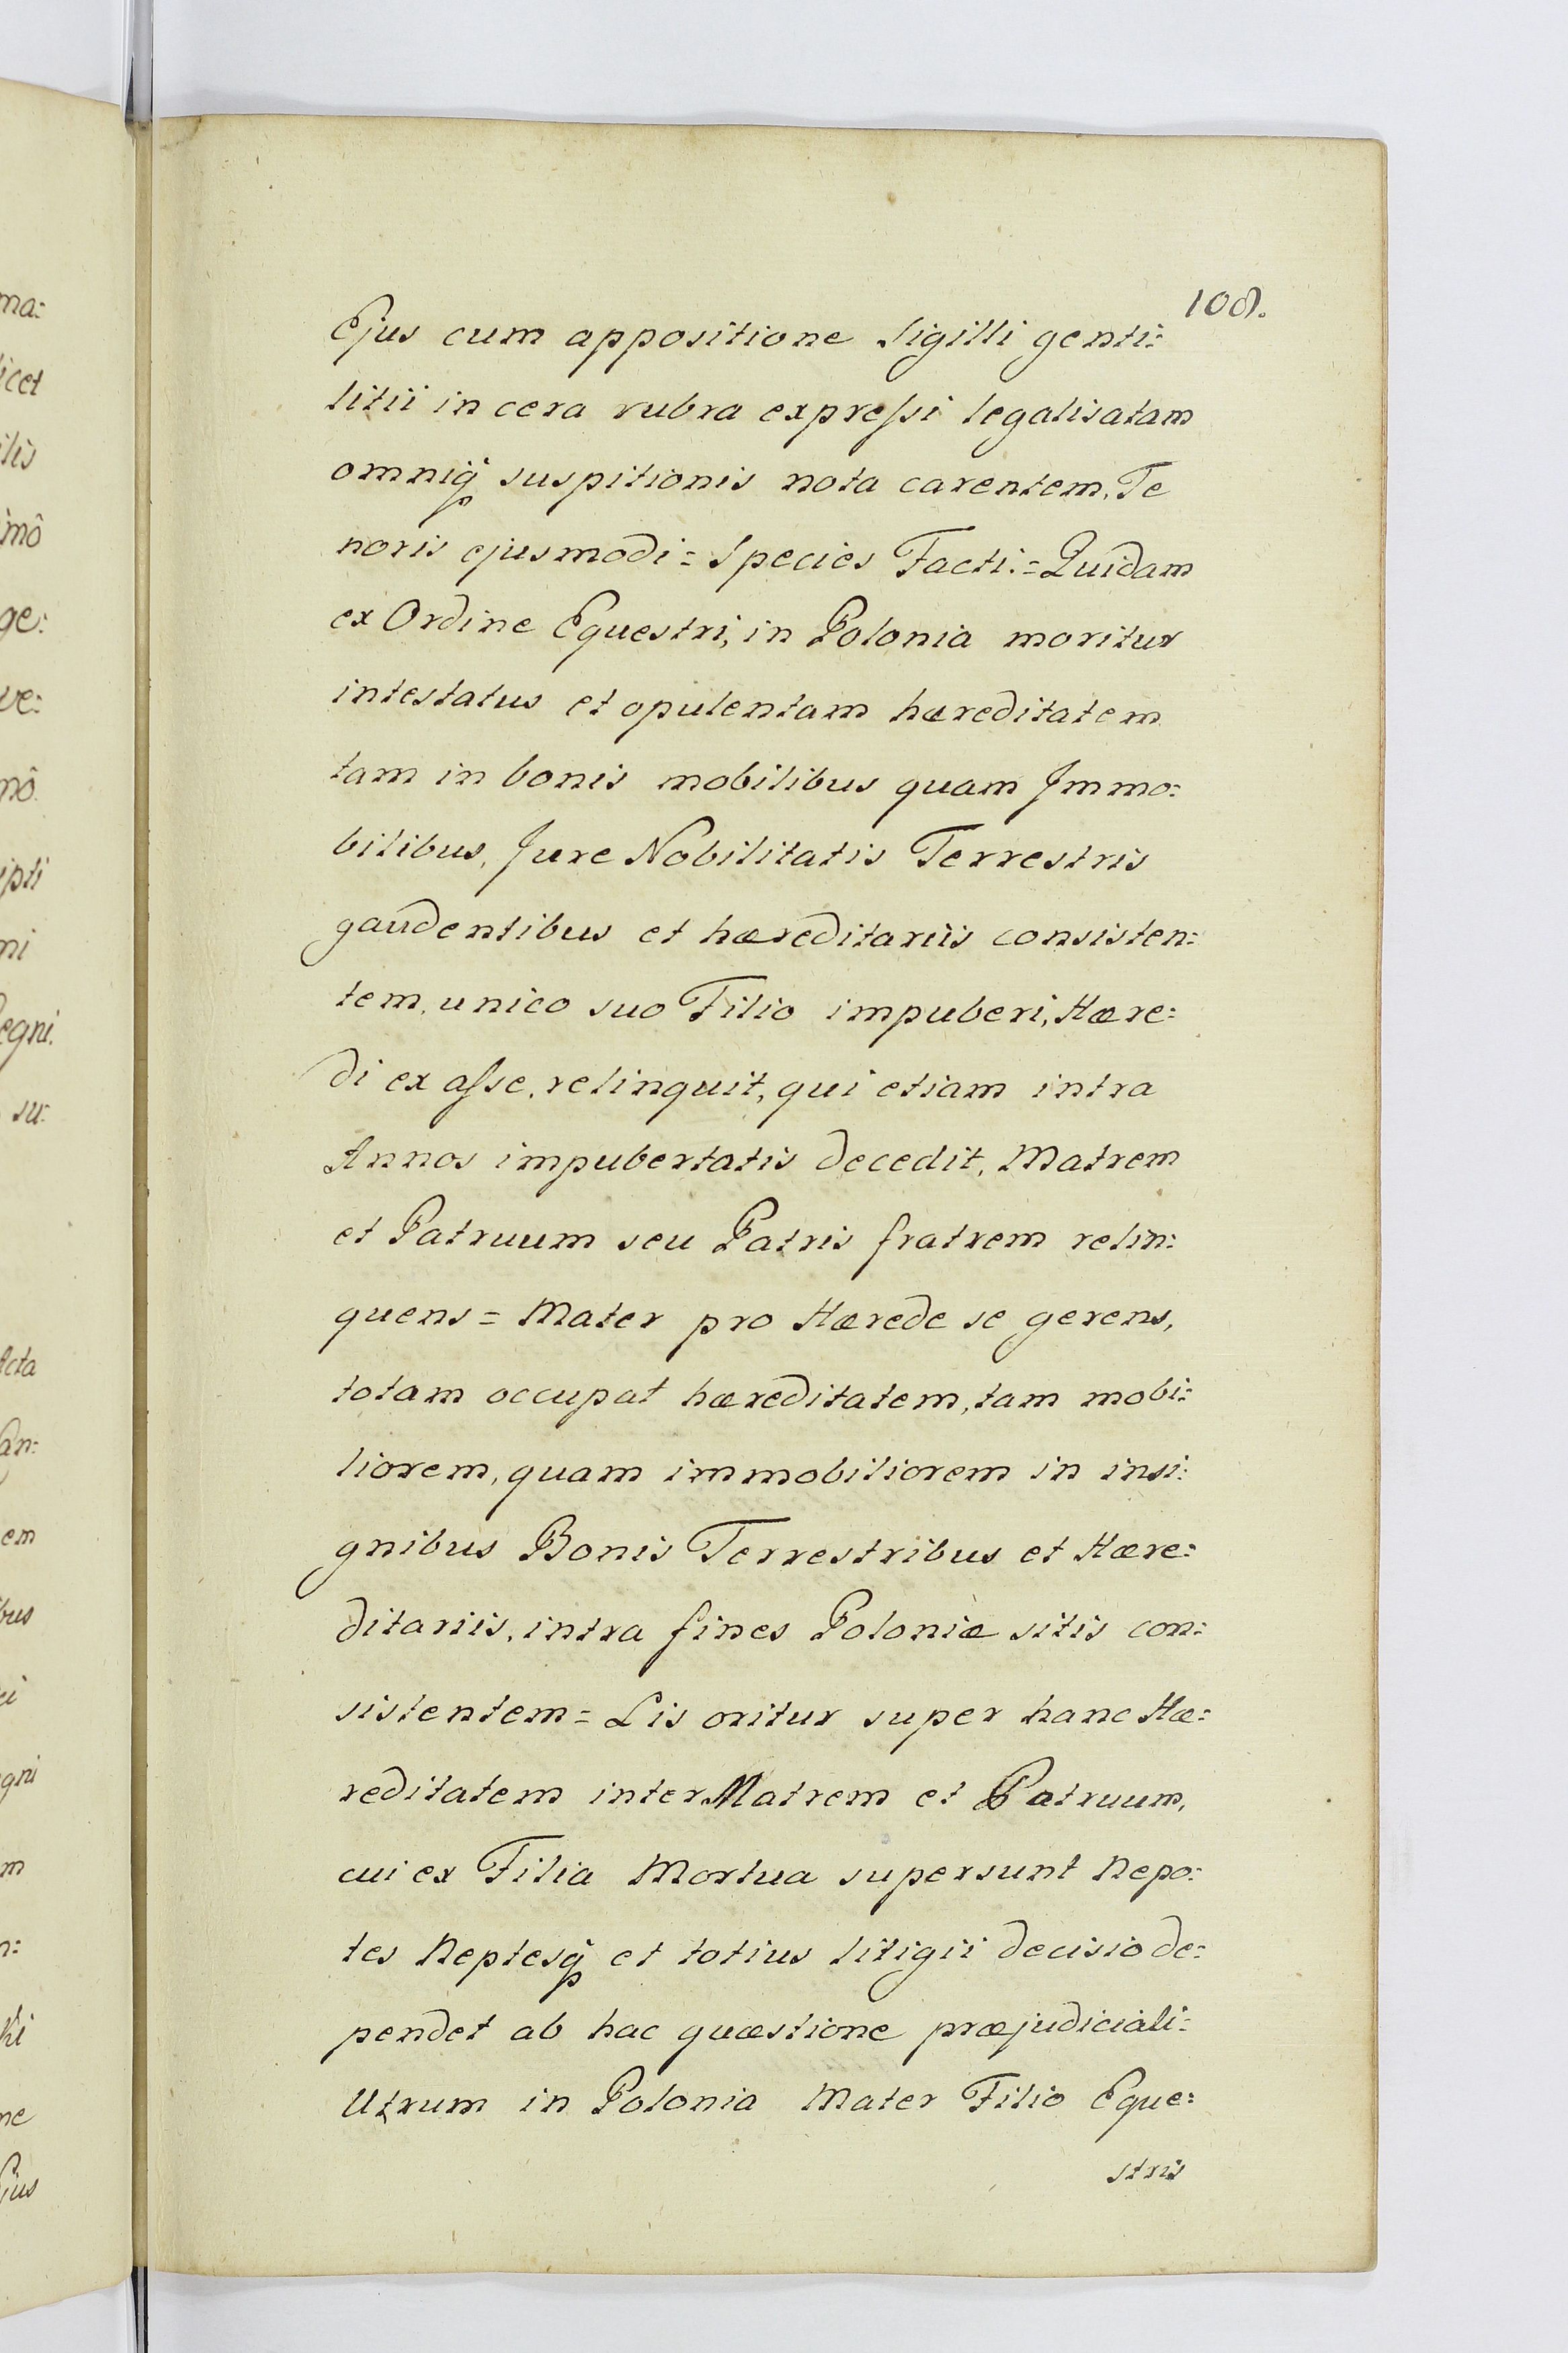 108.
Ejus cum appositione Sigilli genti:
litii in cera rubra expreſsi legalisatam
omniq̃ suspitionis nota carentem. Te
noris ejusmodi = Species Facti = Quidam
ex Ordine Equestri, in Polonia moritur
intestatus et opulentam hæreditatem
tam in bonis mobilibus quam Jmmo:
bilibus, Jure Nobilitatis Terrestris
gaudentibus et hæreditariis consisten:
tem, unico suo Filio impuberi, Hære:
di ex aſse, relinquit, qui etiam intra
Annos impubertatis decedit, Matrem
et Patruum seu Patris fratrem relin:
quens = Mater pro Hærede se gerens,
totam occupat hæreditatem, tam mobi:
liorem, quam immobiliorem in insi:
gnibus Bonis Terrestribus et Hære:
ditariis, intra fines Poloniæ sitis con:
sistentem = Lis oritur super hanc Hæ:
reditatem inter Matrem et Patruum,
cui ex Filia Mortua supersunt Nepo:
tes Neptesq̃ et totius litigii decisio de:
pendet ab hac quæstione præjudiciali:
Utrum in Polonia Mater Filio Eque:
stris
ma:
licet
ilis
imô
ge:
ve:
mô.
ipti
ni
Regni.
su:
Acta
an:
em
bus
ei
egni
m
n:
ki
ne
Ejus